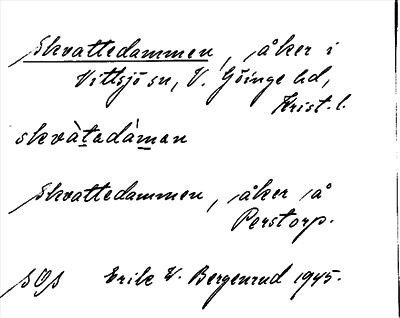 Skvattedammen, åker i
Vittsjö sn, V. Göinge hd,
Krist. l.
skvàtadáman
Skvattedammen, åker å
Perstorp.
SOs Erik W. Bergenrud 1945.